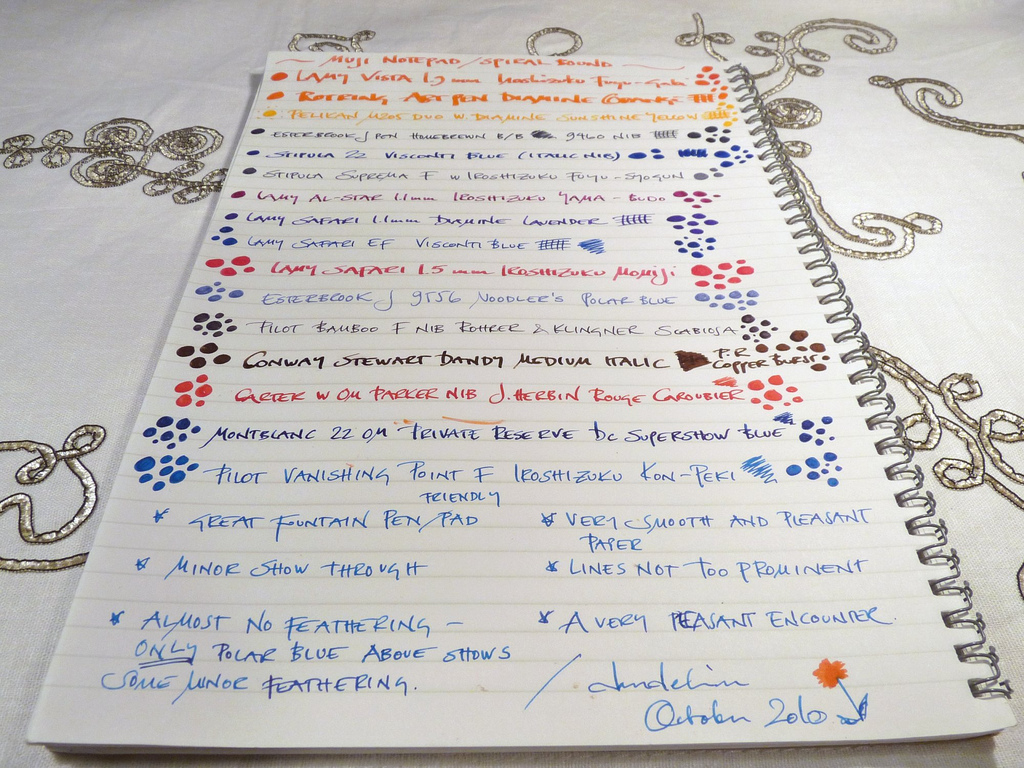 ~ MUJI NOTEPAD/SPIRAL BOUND ~
LAMY VISTA 1.9 mm IROSHIZUKU FUYU-GAKI
ROTRING ART PEN DIAMINE ORANGE
PELIKAN M205 DUO W. DIAMINE SUNSHINE YELLOW
ESTERBROOK J PEN HOMEBREWN B/B 9460 NIB
STIPULA 22 VISCONTI BLUE (ITALIC NIB)
STIPULA SUPREMA F W IROSHIZUKU FUYU-SYOGUN
LAMY AL-STAR 1.1mm IROSHIZUKU YAMA-BUDO
LAMY SAFARI 1.1mm DIAMINE LAVENDER
LAMY SAFARI EF VISCONTI BLUE
LAMY SAFARI 1.5 mm IROSHIZUKU MOMIJI
ESTERBROOK J 9556 NOODLER'S POLAR BLUE
PILOT BAMBOO F NIB ROHRER & KLINGNER SCABIOSA
CONWAY STEWART DANDY MEDIUM ITALIC P.R COPPER BURST
CARTER W OM PARKER NIB J.HERBIN ROUGE CAROUBIER
MONTBLANC 22 OM PRIVATE RESERVE DC SUPERSHOW BLUE
PILOT VANISHING POINT F IROSHIZUKU KON-PEKI
FRIENDLY
* GREAT FOUNTAIN PEN/PAD
* MINOR SHOW THROUGH
* ALMOST NO FEATHERING –
ONLY POLAR BLUE ABOVE SHOWS
SOME MINOR FEATHERING.
* VERY SMOOTH AND PLEASANT
PAPER
* LINES NOT TOO PROMINENT
* A VERY PLEASANT ENCOUNTER.
October 2010